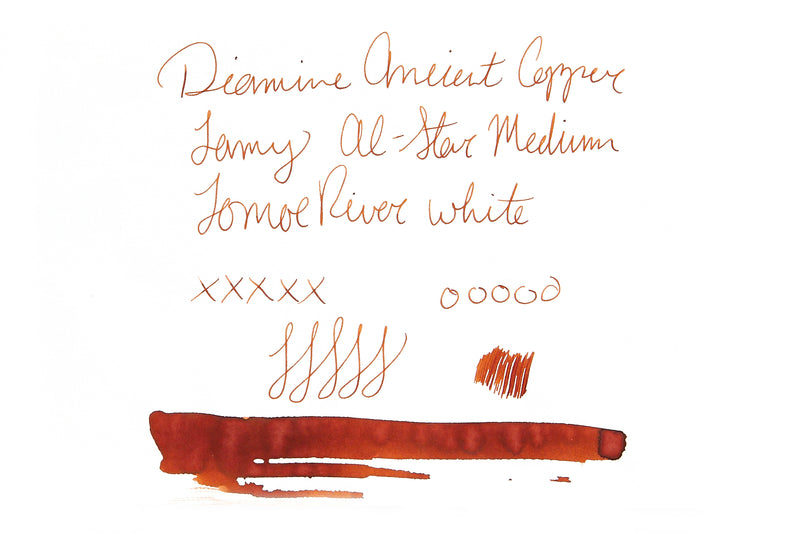 Diamine Ancient Copper
Lamy Al-Star Medium
Tomoe River white
XXXXX OOOOO